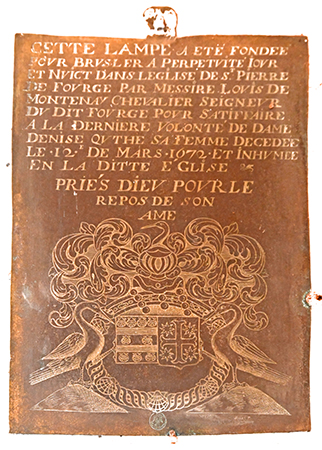 CETTE LAMPE A ETÉ FONDEE
POUR BRUSLER A PERPETUITÉ IOUR
ET NUICT DANS LEGLISE DE St. PIERRE
DE FOURGE PAR MESSIRE LOUIS DE
MONTENAY CHEVALIER SEIGNEUR
DU DIT FOURGE POUR SATIFFAIRE
A LA DERNIERE VOLONTÉ DE DAME
DENISE QUTHE SA FEMME DECEDEE
LE 12. DE MARS 1672 ET INHUMEE
EN LA DITTE EGLISE
PRIES DIEU POUR LE
REPOS DE SON
AME